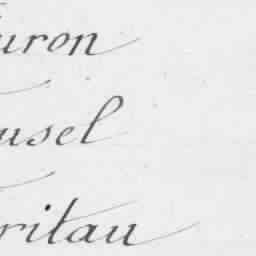 uron
usel
ritau